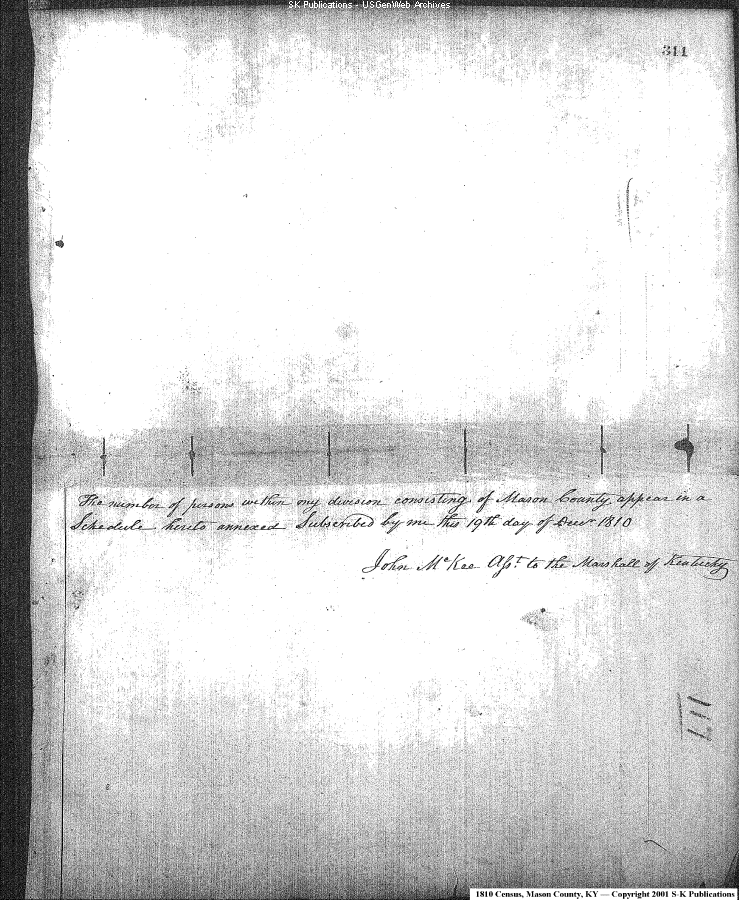 SK Publications - USGenWeb Archives
311
The number of persons within my division consisting of Mason County, appear in a
Schedule hereto annexed Subscribed by me this 19th day of Decr 1810
John McKee Asst. to the Marshall of Kentucky
1810 Census, Mason County, KY — Copyright 2001 S-K Publications